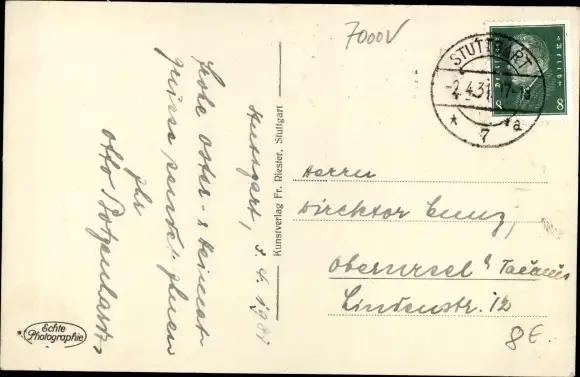 7000V
STUTTGART
-2.4.31.17-18
* 7 a
8 8
Stuttgart, 3. 4. 1931
Frohe Oster- & Heimat-
grüsse sendet Ihnen
Ihr
Otto
Kunstverlag Fr. Riester, Stuttgart
Herrn
Direktor
Oberursel / Taunus
Lindenstr. 12
8 €.
Echte
Photographie